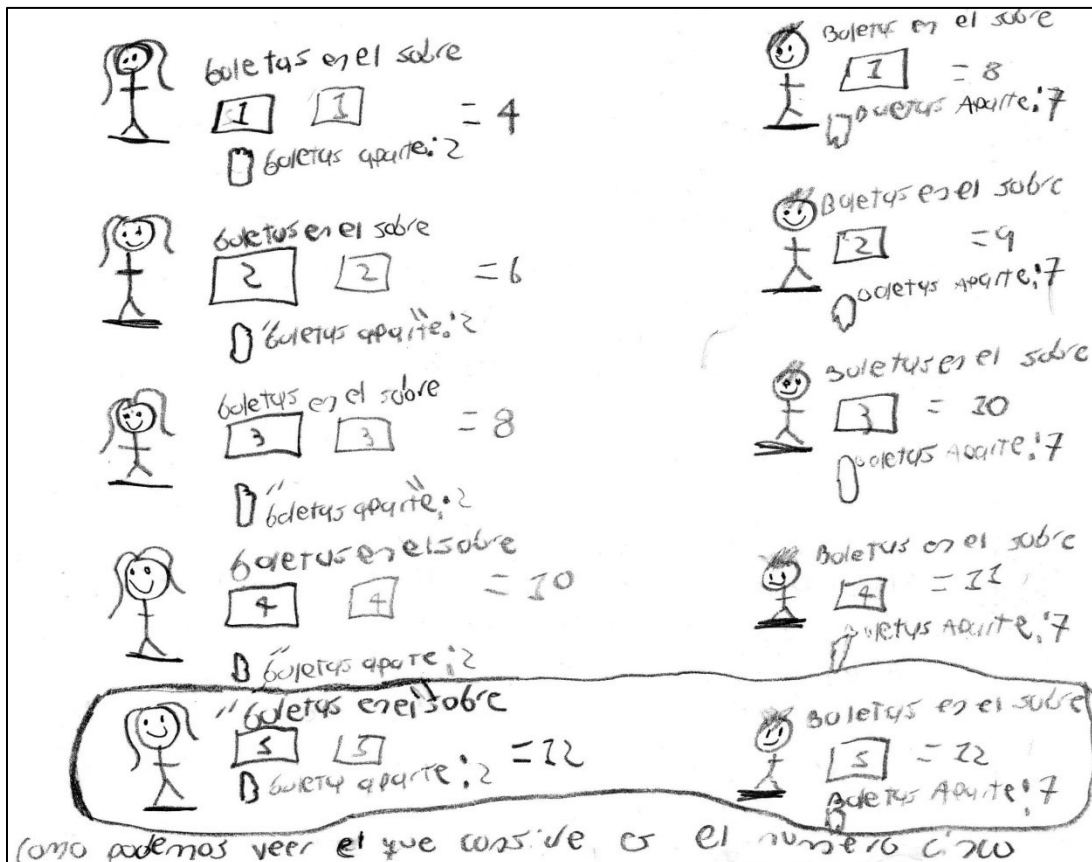 boletas en el sobre
1 1 = 4
boletas aparte: 2
Boletas en el sobre
1 = 8
Boletas Aparte: 7
boletas en el sobre
2 2 = 6
"boletas aparte": 2
Boletas en el sobre
2 = 9
Boletas Aparte: 7
boletas en el sobre
3 3 = 8
"boletas aparte": 2
Boletas en el sobre
3 = 10
Boletas Aparte: 7
boletas en el sobre
4 4 = 10
"boletas apate: 2
Boletas en el sobre
4 = 11
Boletas Aparte: 7
"boletas en el" sobre
5 5 = 12
boleta aparte: 2
Boletas en el sobre
5 = 12
Boletas Aparte: 7
como podemos veer el que conside es el numero cinco